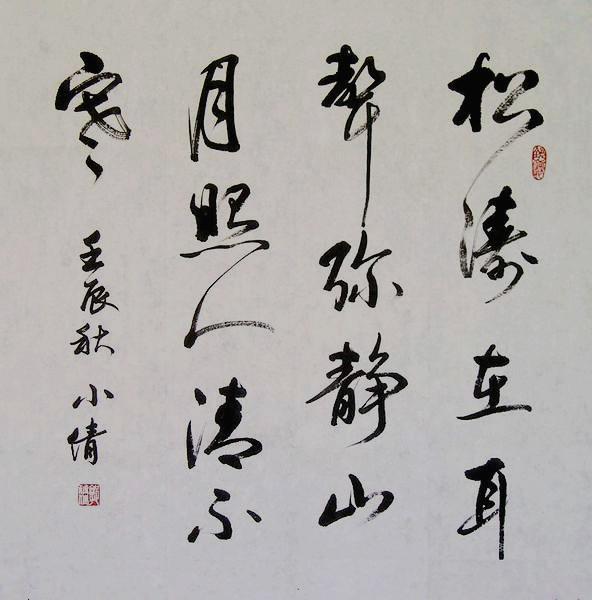 松涛在耳
聲弥静山
月照人清不
寒
壬辰秋 小倩